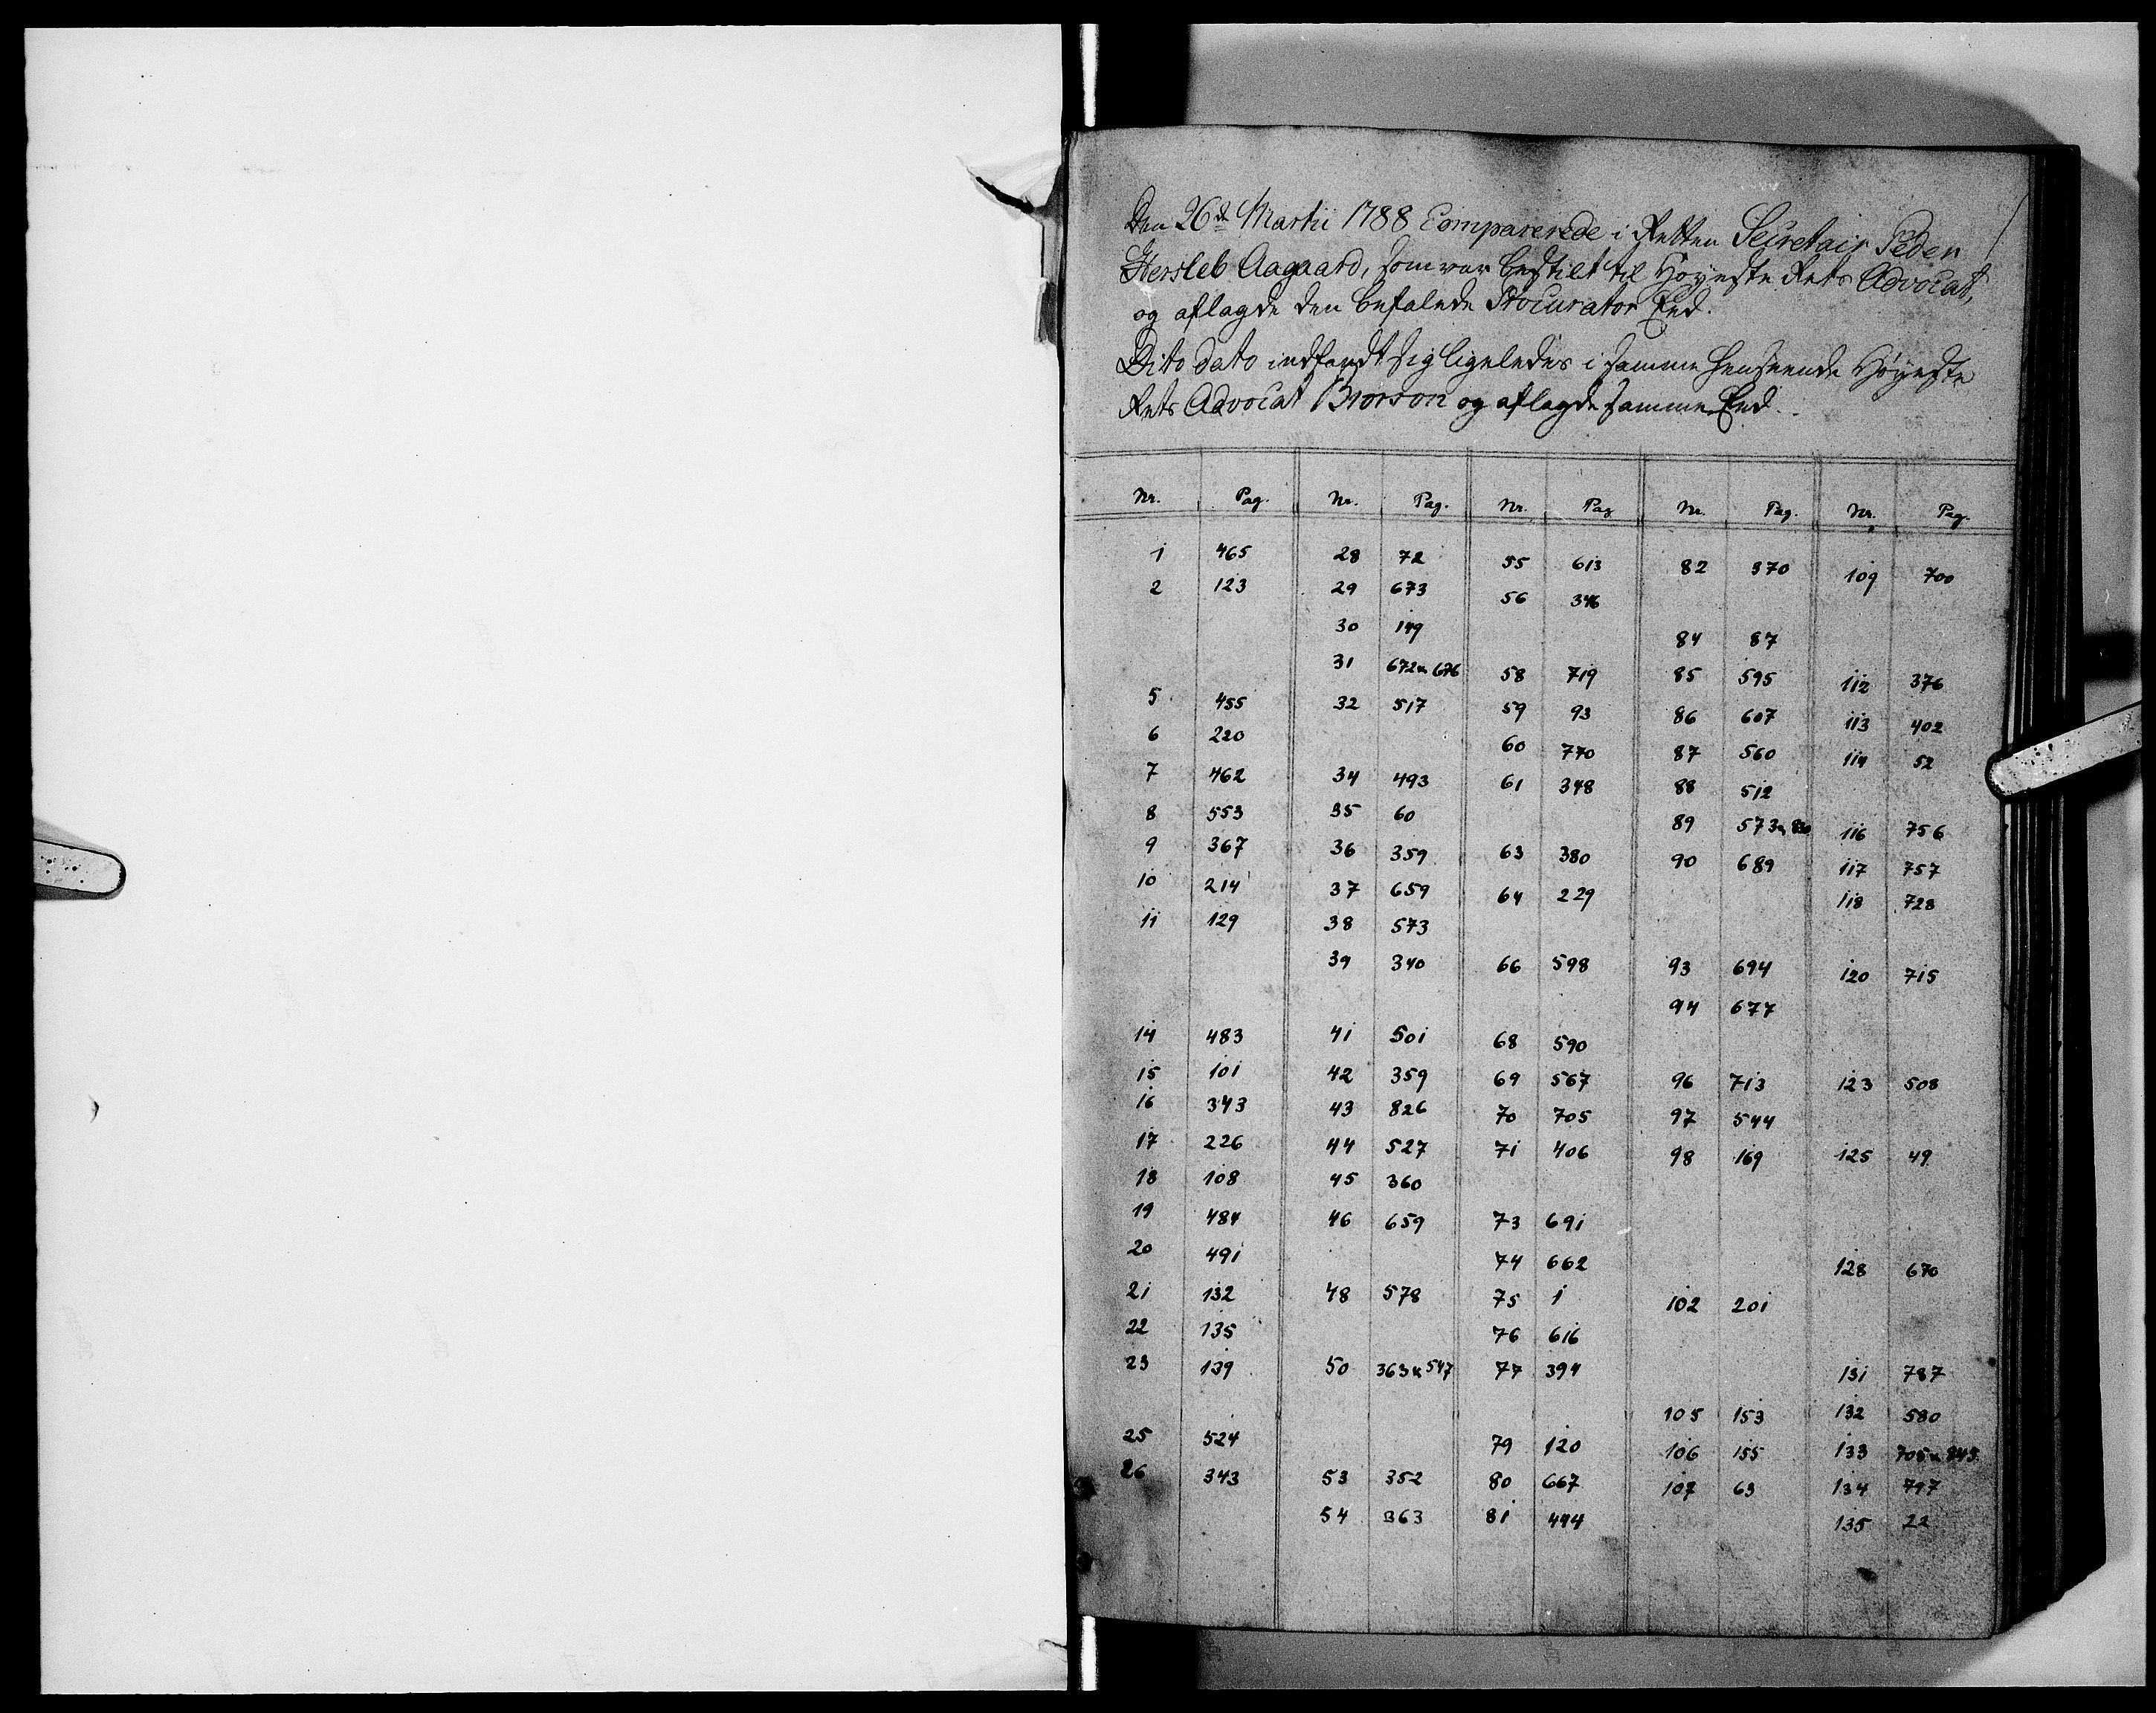 Den 26de Martii 1788 Comparerede i Retten Secretair Peder
Hersleb Aagaard, som var bestilt til Høyeste Rets Advocat,
og aflagde den befalede Procurator Eed.
Dito dato indfandt sig ligeledes i samme henseende Høyeste
Rets Advocat Brorson og aflagde samme Eed.
Nr. Pag. Nr. Pag. Nr. Pag Nr. Pag. Nr. Pag.
1 465 28 72 55 613 82 370 109 700
2 123 29 673 56 346
30 149 84 87
31 672 & 676 58 719 85 595 112 376
5 455 32 517 59 93 86 607 113 402
6 220 60 770 87 560 114 52
7 462 34 493 61 348 88 512
8 553 35 60 89 573 & 116 756
9 367 36 359 63 380 90 689 117 757
10 214 37 659 64 229 118 728
11 129 38 573
39 340 66 598 93 694 120 715
94 677
14 483 41 501 68 590
15 101 42 359 69 567 96 713 123 508
16 343 43 826 70 705 97 544
17 226 44 527 71 406 98 169 125 49
18 108 45 360
19 484 46 659 73 691
20 491 74 662 128 670
21 132 48 578 75 1 102 201
22 135 76 616
23 139 50 363 & 547 77 394 131 787
105 153 132 580
25 524 79 120 106 155 133 705 & 845
26 343 53 352 80 667 107 63 134 797
54 363 81 444 135 22